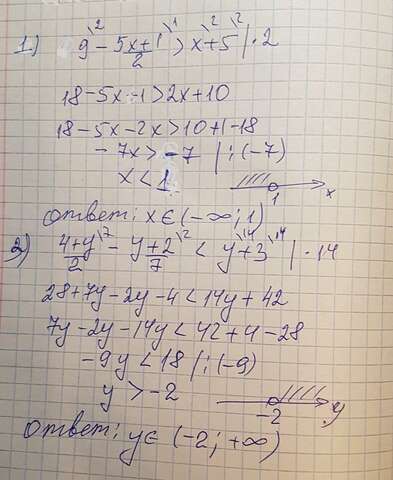 1) 9\² - (5x+1)/2\¹ > x\² + 5\² | ·2
18-5x-1>2x+10
18-5x-2x>10+1-18
-7x>-7 | :(-7)
x<1
1 x
ответ: x∈(-∞; 1)
2) (4+y)/2\⁷ - (y+2)/7\² < y\¹⁴ + 3\¹⁴ | ·14
28+7y-2y-4<14y+42
7y-2y-14y<42+4-28
-9y<18 | :(-9)
y>-2
-2 y
ответ: y∈(-2; +∞)